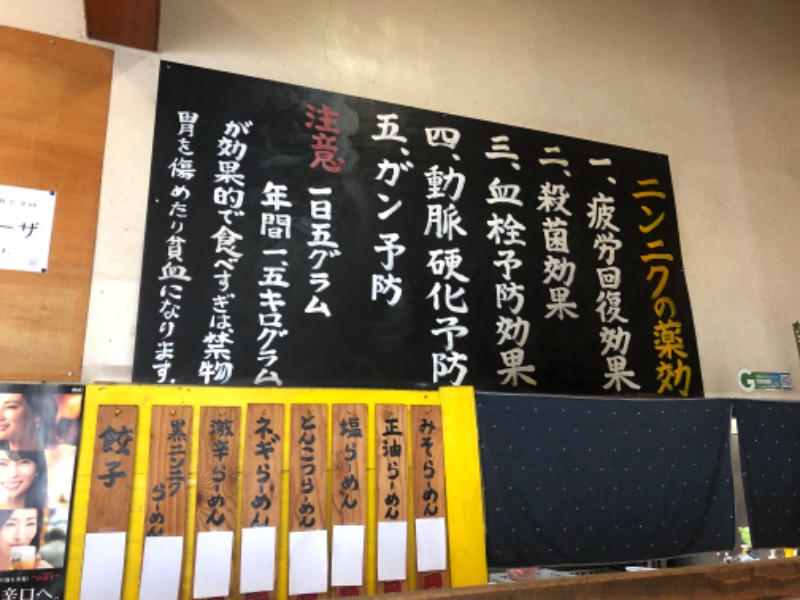 ニンニクの薬効
一、疲労回復効果
二、殺菌効果
三、血栓予防効果
四、動脈硬化予防
五、ガン予防
注意 一日五グラム
年間一、五キログラム
が効果的で食べすぎは禁物
胃を傷めたり貧血になります。
みそらーめん
正油らーめん
塩らーめん
とんこつらーめん
ネギらーめん
激辛らーめん
黒ニンニクらーめん
餃子
ーザ
辛口へ。